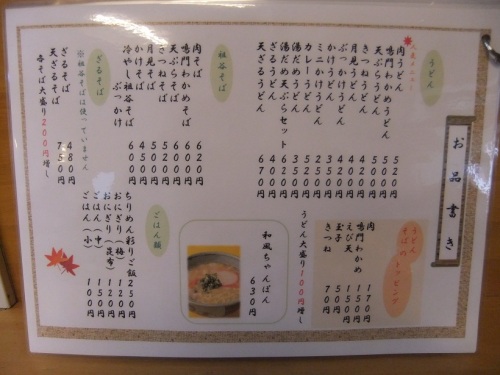 お品書き
うどん
人気メニュー
肉うどん 520円
鳴門わかめうどん 500円
天ぷらうどん 500円
きつねうどん 420円
月見うどん 400円
ぶっかけうどん 420円
かけうどん 350円
ミニかけうどん 250円
カレーうどん 520円
湯だめうどん 350円
湯だめ天ぷらセット 620円
ざるうどん 400円
天ざるうどん 670円
祖谷そば
肉そば 620円
鳴門わかめそば 600円
天ぷらそば 600円
きつねそば 520円
月見そば 500円
かけそば 450円
冷やし祖谷そば
ぶっかけ 600円
ざるそば
※祖谷そばは使っていません
ざるそば 480円
天ざるそば 750円
各そば大盛り200円増し
うどん
そば トッピング
肉 170円
鳴門わかめ 150円
えび天 150円
玉子 50円
きつね 70円
うどん大盛り100円増し
和風ちゃんぽん 630円
ごはん類
ちりめん彩りご飯 250円
おにぎり(梅) 120円
おにぎり(昆布) 120円
ごはん(中) 150円
ごはん(小) 100円